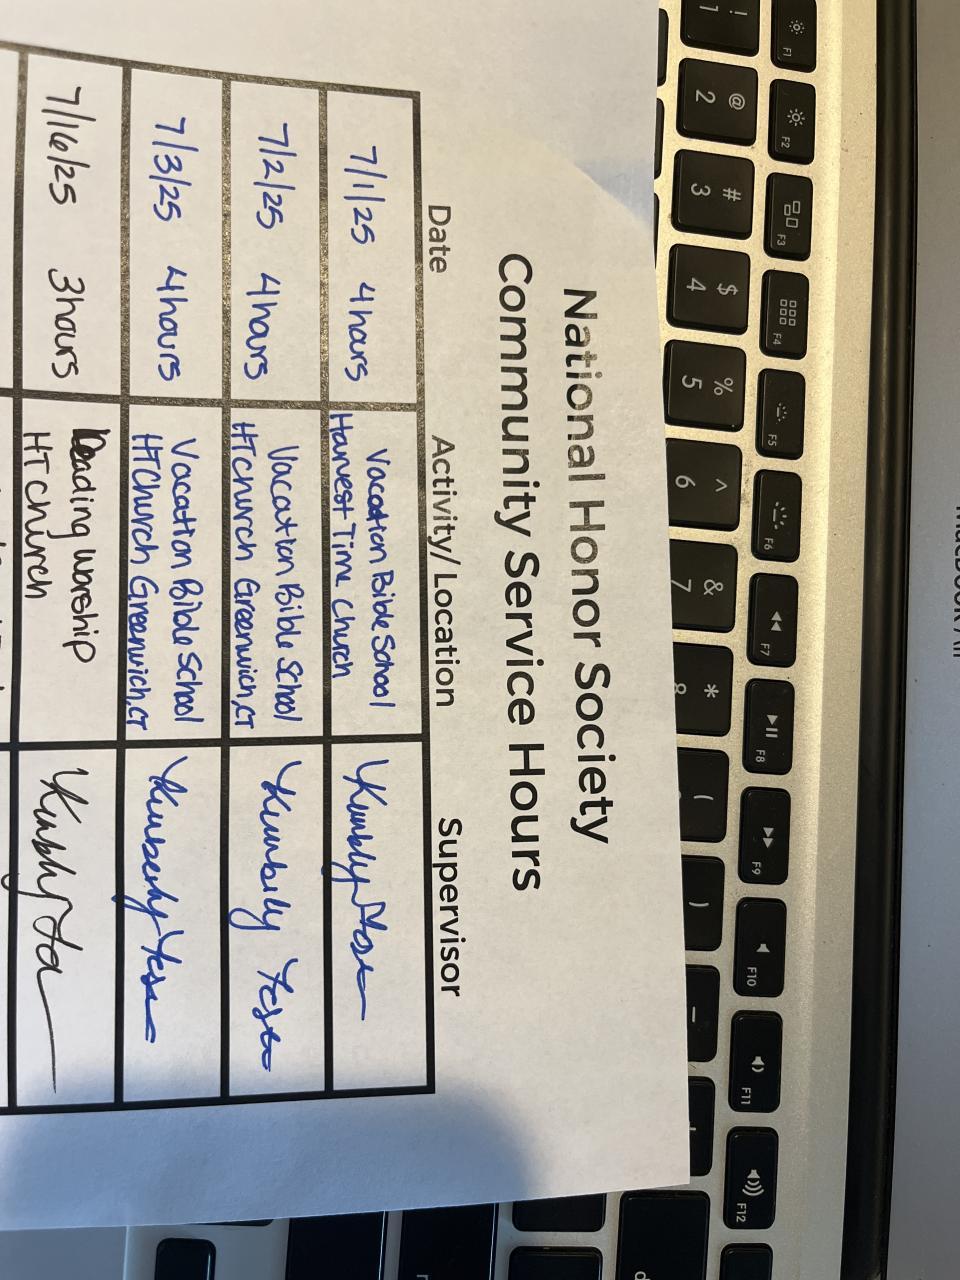 National Honor Society
Community Service Hours
Date Activity/Location Supervisor
7/1/25 4 hours
Vacation Bible School
Harvest Time Church
7/2/25 4 hours
Vacation Bible School
HT Church Greenwich, CT
Kimberly
7/3/25 4 hours
Vacation Bible School
HT Church Greenwich, CT
Kimberly
7/16/25 3 hours
Leading worship
HT church
! 1
@ 2
# 3
$ 4
% 5
^ 6
& 7
* 8
(
)
F1
F2
F3
F4
F5
F6
F7
F8
F9
F10
F11
F12